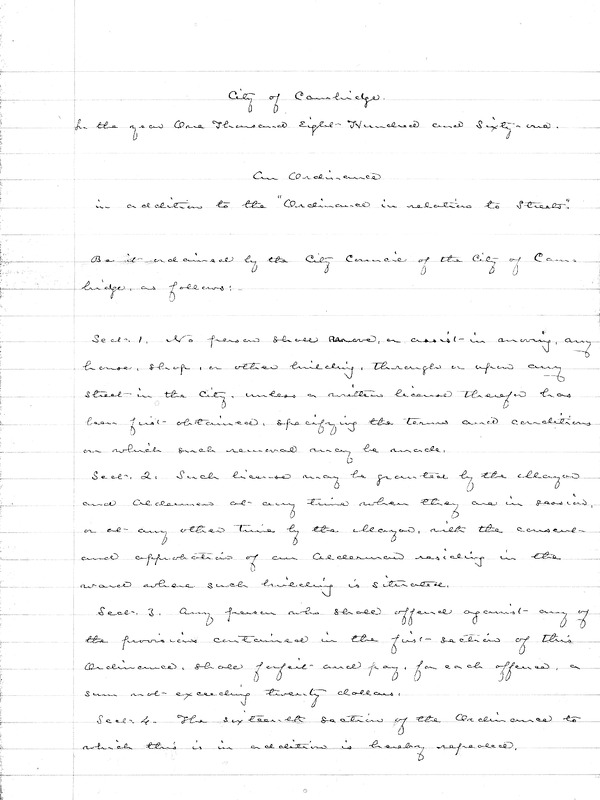 City of Cambridge.
In the year One Thousand Eight Hundred and Sixty-one.
An Ordinance
in addition to the "Ordinance in relation to Streets".
Be it ordained by the City Council of the City of Cam-
bridge, as follows:
Sect. 1. No person shall move, or assist in moving, any
house, shop, or other building, through or upon any
street in the City, unless a written license therefor has
been first obtained, specifying the terms and conditions
on which such removal may be made.
Sect. 2. Such license may be granted by the Mayor
and Aldermen at any time when they are in session,
or at any other time by the Mayor, with the consent
and approbation of an Alderman residing in the
ward where such building is situated.
Sect. 3. Any person who shall offend against any of
the provisions contained in the first section of this
Ordinance, shall forfeit and pay, for each offence, a
sum not exceeding twenty dollars.
Sect. 4. The sixteenth section of the Ordinance to
which this is in addition is hereby repealed.